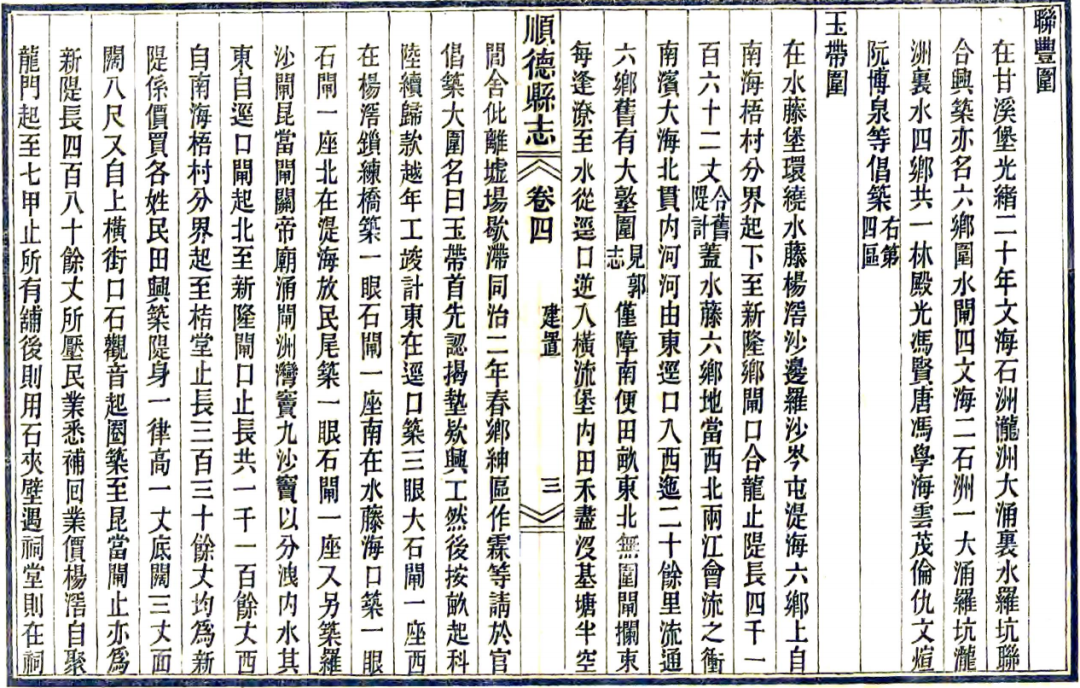 聯豐圍
在甘溪堡光緒二十年文海石洲瀧洲大涌裏水羅坑聯
合興築亦名六鄉圍水閘四文海二石洲一大涌羅坑瀧
洲裏水四鄉共一林殿光馮賢唐馮學海雲茂倫仇文煊
阮博泉等倡築右第四區
玉帶圍
在水藤堡環繞水藤楊滘沙邊羅沙岑屯湜海六鄉上自
南海梧村分界起下至新隆鄉閘口合龍止隄長四千一
百六十二丈合舊隄計蓋水藤六鄉地當西北兩江會流之衝
南濱大海北貫內河河由東逕口入西迤二十餘里流通
六鄉舊有大壑圍見郭志僅障南便田畝東北無圍閘攔東
每逢潦至水從逕口逆入橫流堡內田禾盡沒基塘半空
順德縣志
卷四
建置
三
閭舍仳離墟場歇滯同治二年春鄉紳區作霖等請於官
倡築大圍名曰玉帶首先認揭墊欵興工然後按畝起科
陸續歸款越年工竣計東在逕口築三眼大石閘一座西
在楊滘鎖練橋築一眼石閘一座南在水藤海口築一眼
石閘一座北在湜海放民尾築一眼石閘一座又另築羅
沙閘昆當閘關帝廟涌閘洲灣竇九沙竇以分洩內水其
東自逕口閘起北至新隆閘口止長共一千一百餘丈西
自南海梧村分界起至桔堂止長三百三十餘丈均爲新
隄係價買各姓民田興築隄身一律高一丈底闊三丈面
闊八尺又自上橫街口石觀音起圈築至昆當閘止亦爲
新隄長四百八十餘丈所壓民業悉補回業價楊滘自聚
龍門起至七甲止所有舖後則用石夾壁遇祠堂則在祠